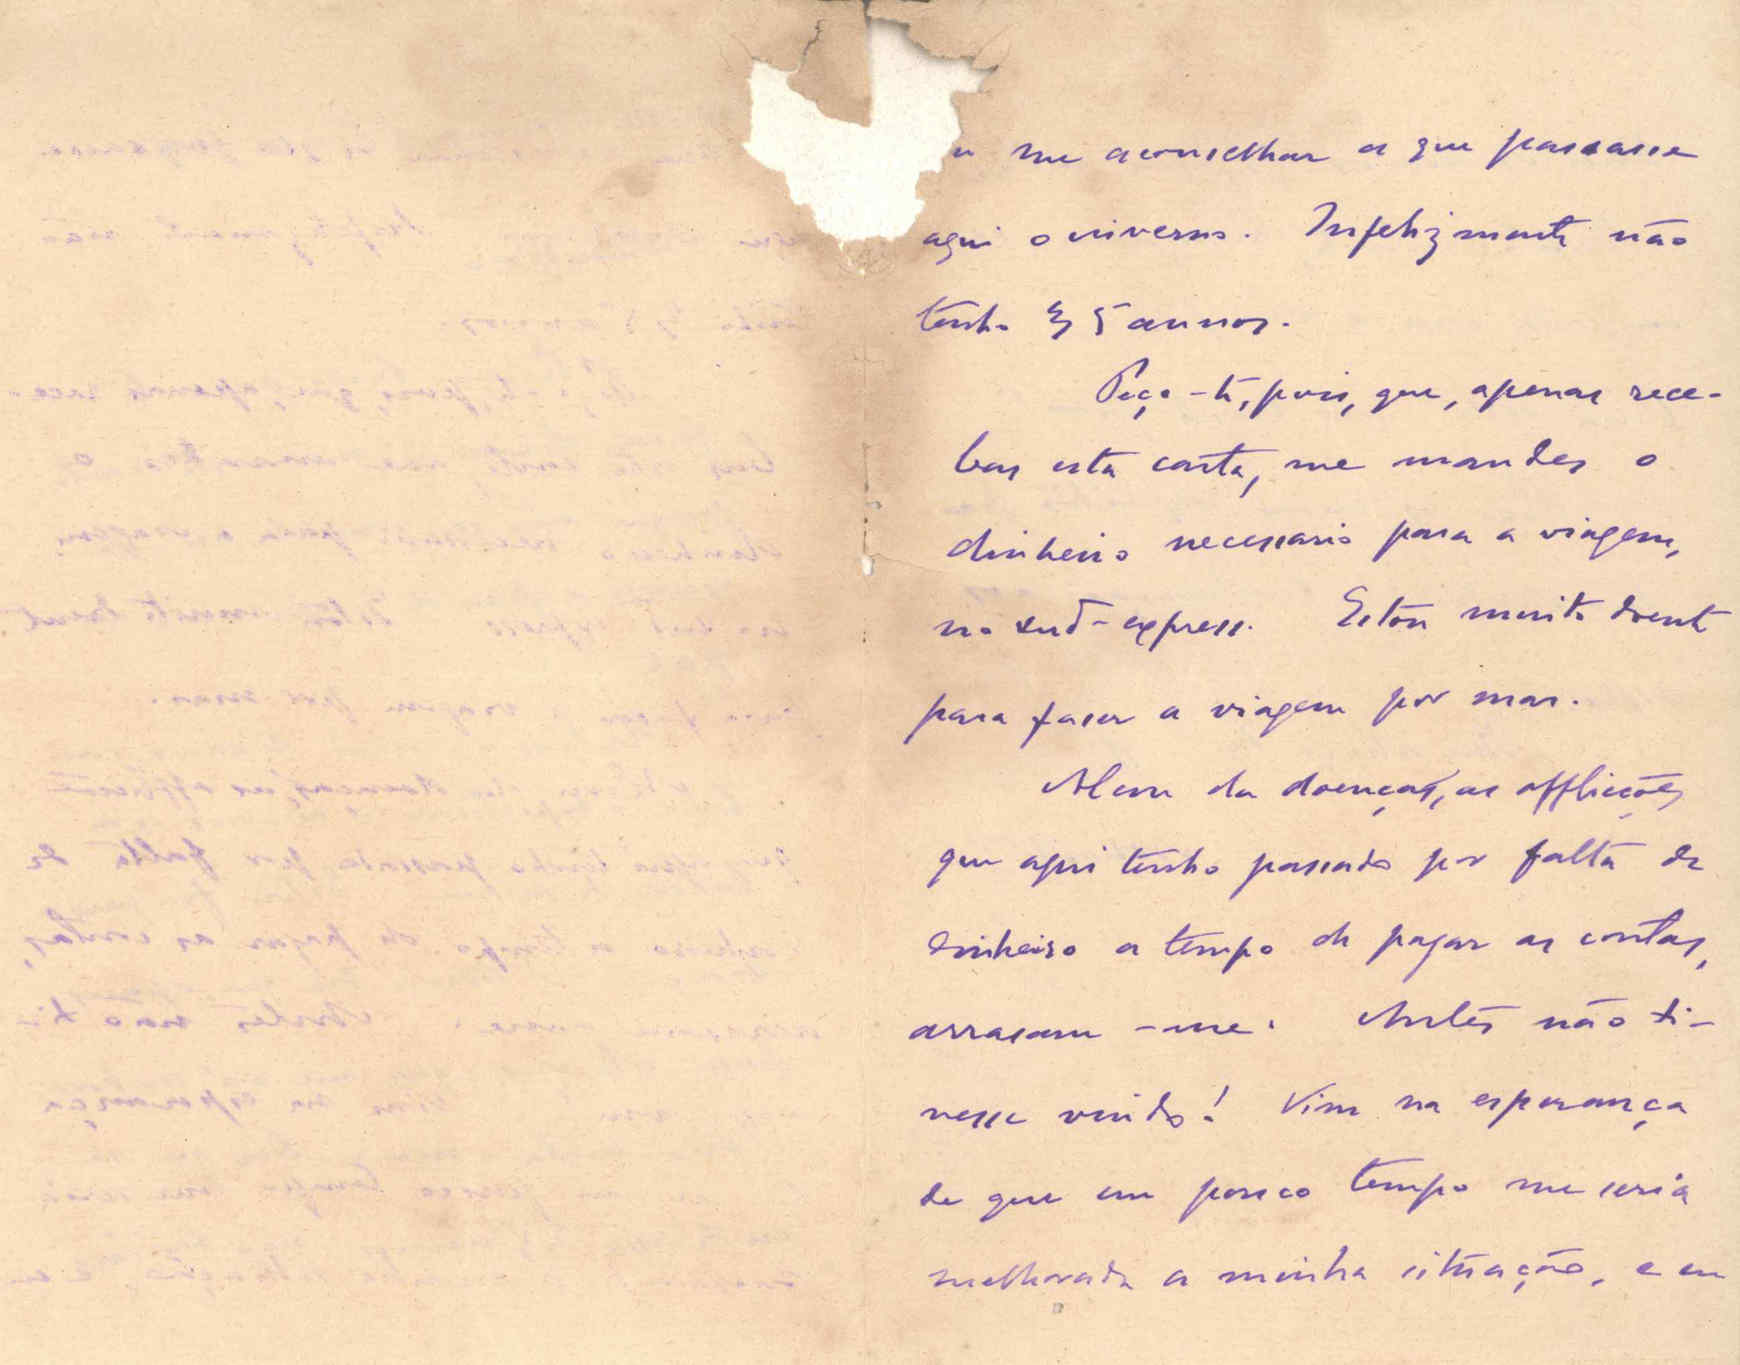 me aconselhar a que passasse
aqui o inverno. Infelizmente não
tenho 35 annos.
Peço-te, pois, que, apenas rece-
bas esta carta, me mandes o
dinheiro necessario para a viagem,
no sud-express. Estou muito doente
para faser a viagem por mar.
Alem da doenças, as afflicções
que aqui tenho passado por falta de
dinheiro a tempo de pagar as contas,
arrasam-me. Antes não ti-
vesse vindo! Vim na esperança
de que em pouco tempo me seria
melhorada a minha situação, e eu